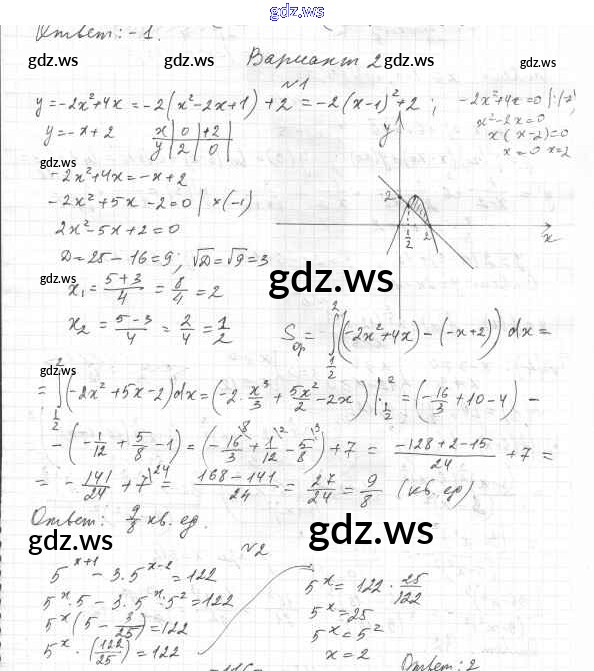 gdz.ws
Ответ: -1.
gdz.ws gdz.ws gdz.ws
Вариант 2
№1
y=-2x²+4x=-2(x²-2x+1)+2=-2(x-1)²+2;
-2x²+4x=0 |:(-2)
x²-2x=0
x(x-2)=0
x=0 x=2
y=-x+2
x | 0 | +2 |
y | 2 | 0 |
gdz.ws
-2x²+4x=-x+2
-2x²+5x-2=0 | ×(-1)
2x²-5x+2=0
D=25-16=9; √D=√9=3
y
2
1/2
2
x
gdz.ws
x₁=(5+3)/4=8/4=2
x₂=(5-3)/4=2/4=1/2
Sф=∫_{1/2}^{2}((-2x²+4x)-(-x+2))dx=
gdz.ws
=∫_{1/2}^{2}(-2x²+5x-2)dx=(-2·x³/3+5x²/2-2x)|_{1/2}^{2}=(-16/3+10-4)-
-(-1/12+5/8-1)=(-16/3+1/12-5/8)+7=(-128+2-15)/24+7=
=-141/24+7=(168-141)/24=27/24=9/8 (кв. ед)
gdz.ws gdz.ws
Ответ: 9/8 кв. ед.
gdz.ws gdz.ws
№2
5^{x+1}-3·5^{x-2}=122
5^x·5-3·5^x:5²=122
5^x(5-3/25)=122
5^x·(122/25)=122
5^x=122·25/122
5^x=25
5^x=5²
x=2
gdz.ws gdz.ws gdz.ws
Ответ: 2
-115-